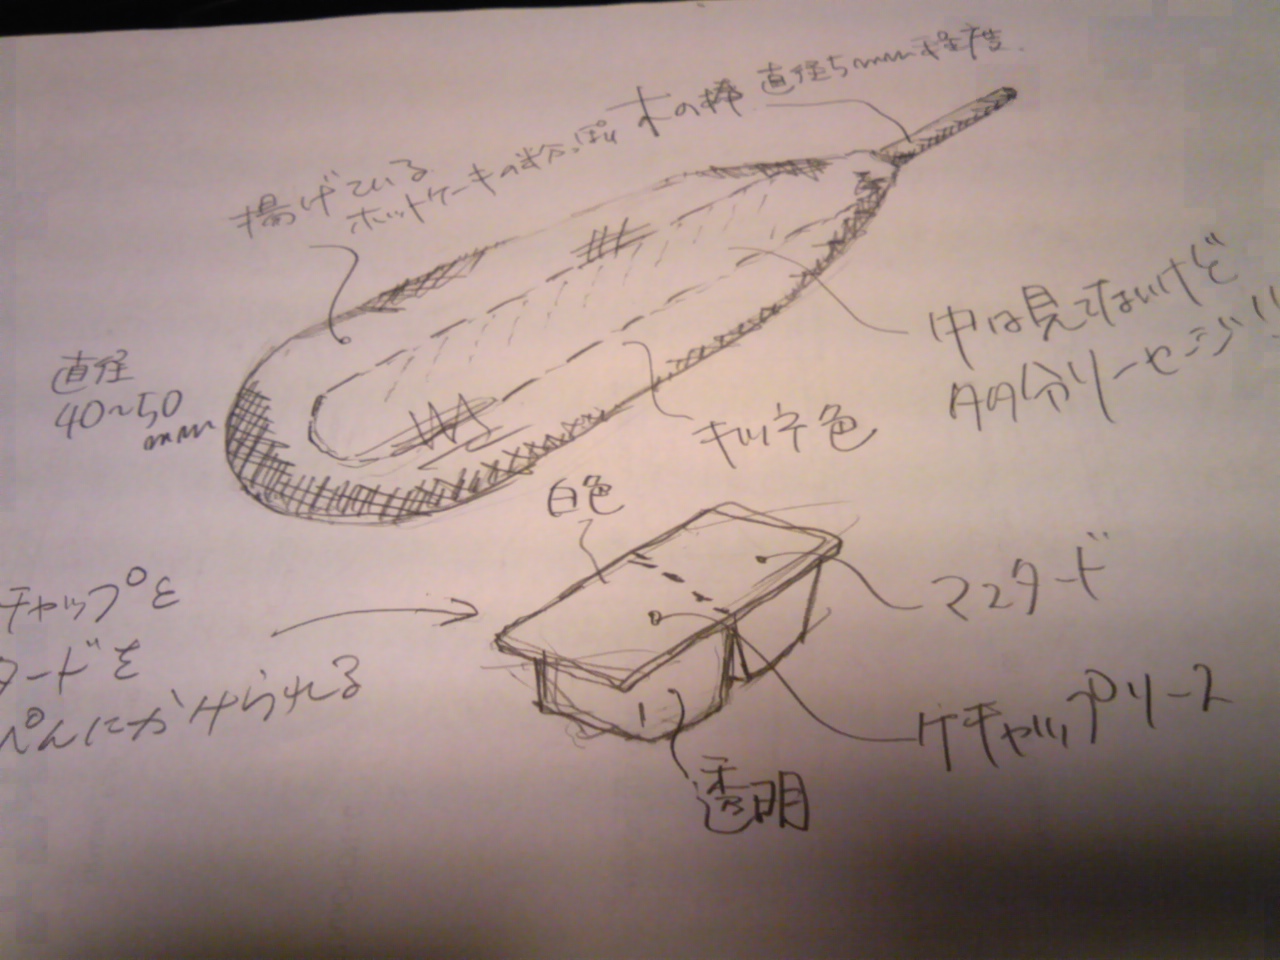 木の棒 直径5mm程度.
揚げている
ホットケーキの粉っぽい
直径
40~50
mm
中は見てないけど
多分ソーセージ!!
キツネ色
白色
マスタード
チャップと
タードを
ぺんにかけられる
ケチャップソース
透明